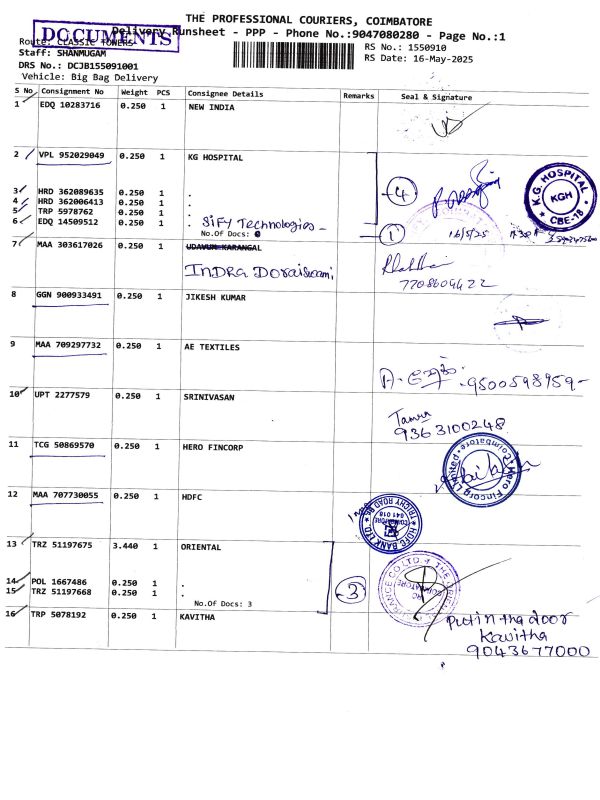 THE PROFESSIONAL COURIERS, COIMBATORE
DOCUMENTS
Delivery Runsheet - PPP - Phone No.:9047080280 - Page No.:1
Route: CLASSIC TOWERS
RS No.: 1550910
Staff: SHANMUGAM
RS Date: 16-May-2025
DRS No.: DCJB155091001
Vehicle: Big Bag Delivery
S No Consignment No Weight PCS Consignee Details Remarks Seal & Signature
1 EDQ 10283716 0.250 1 NEW INDIA
2 VPL 952029049 0.250 1 KG HOSPITAL
3 HRD 362089635 0.250 1 .
4 HRD 362006413 0.250 1 .
5 TRP 5978762 0.250 1 .
6 EDQ 14509512 0.250 1 . SiFY Technologies
No.Of Docs:
4
1
K.G. HOSPITAL
KGH
CBE-18
16/5/25
7 MAA 303617026 0.250 1 UDAVUM KARANGAL
INDRA Doraiswami
7708609422
8 GGN 900933491 0.250 1 JIKESH KUMAR
9 MAA 709297732 0.250 1 AE TEXTILES
9500598959
10 UPT 2277579 0.250 1 SRINIVASAN
9363100248
11 TCG 50869570 0.250 1 HERO FINCORP
Hero Fincorp Limited
Coimbatore
12 MAA 707730055 0.250 1 HDFC
HDFC BANK LTD.
TRICHY ROAD
COIMBATORE
641 018
13 TRZ 51197675 3.440 1 ORIENTAL
14 POL 1667486 0.250 1 .
15 TRZ 51197668 0.250 1 .
No.Of Docs: 3
3
16 TRP 5078192 0.250 1 KAVITHA
Put in tha door
Kavitha
9043677000